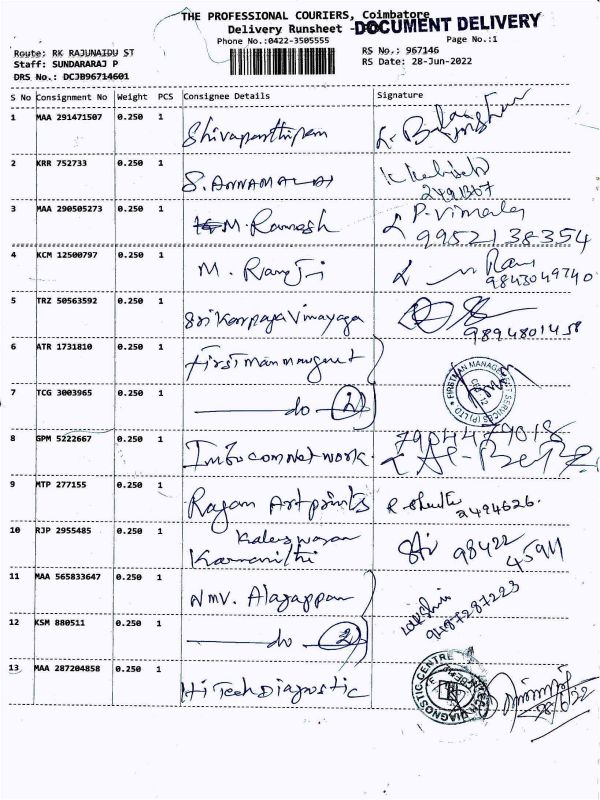 THE PROFESSIONAL COURIERS, Coimbatore
Delivery Runsheet - DOCUMENT DELIVERY
Phone No.:0422-3505555 Page No.:1
Route: RK RAJUNAIDU ST RS No.: 967146
Staff: SUNDARARAJ P RS Date: 28-Jun-2022
DRS No.: DCJB96714601
S No Consignment No Weight PCS Consignee Details Signature
1 MAA 291471507 0.250 1
2 KRR 752733 0.250 1 S. ANNAMALAI
3 MAA 290505273 0.250 1 M. Ramesh P. Vimala
9952138354
4 KCM 12500797 0.250 1 M. Ramji
9843049740
5 TRZ 50563592 0.250 1 Sri Karpaga Vinayaga
9894801458
6 ATR 1731810 0.250 1
FIRSTMAN MANAGEMENT SERVICES (P) LTD
7 TCG 3003965 0.250 1 do (2)
8 GPM 5222667 0.250 1 Infocom Network
9 MTP 277155 0.250 1 Rajan Art prints 2494626.
10 RJP 2955485 0.250 1
98422
11 MAA 565833647 0.250 1 NMV. Alagappan
12 KSM 880511 0.250 1 do (2)
13 MAA 287204858 0.250 1 Hi Tech Diagnostic
DIAGNOSTIC CENTRE
28/6/22